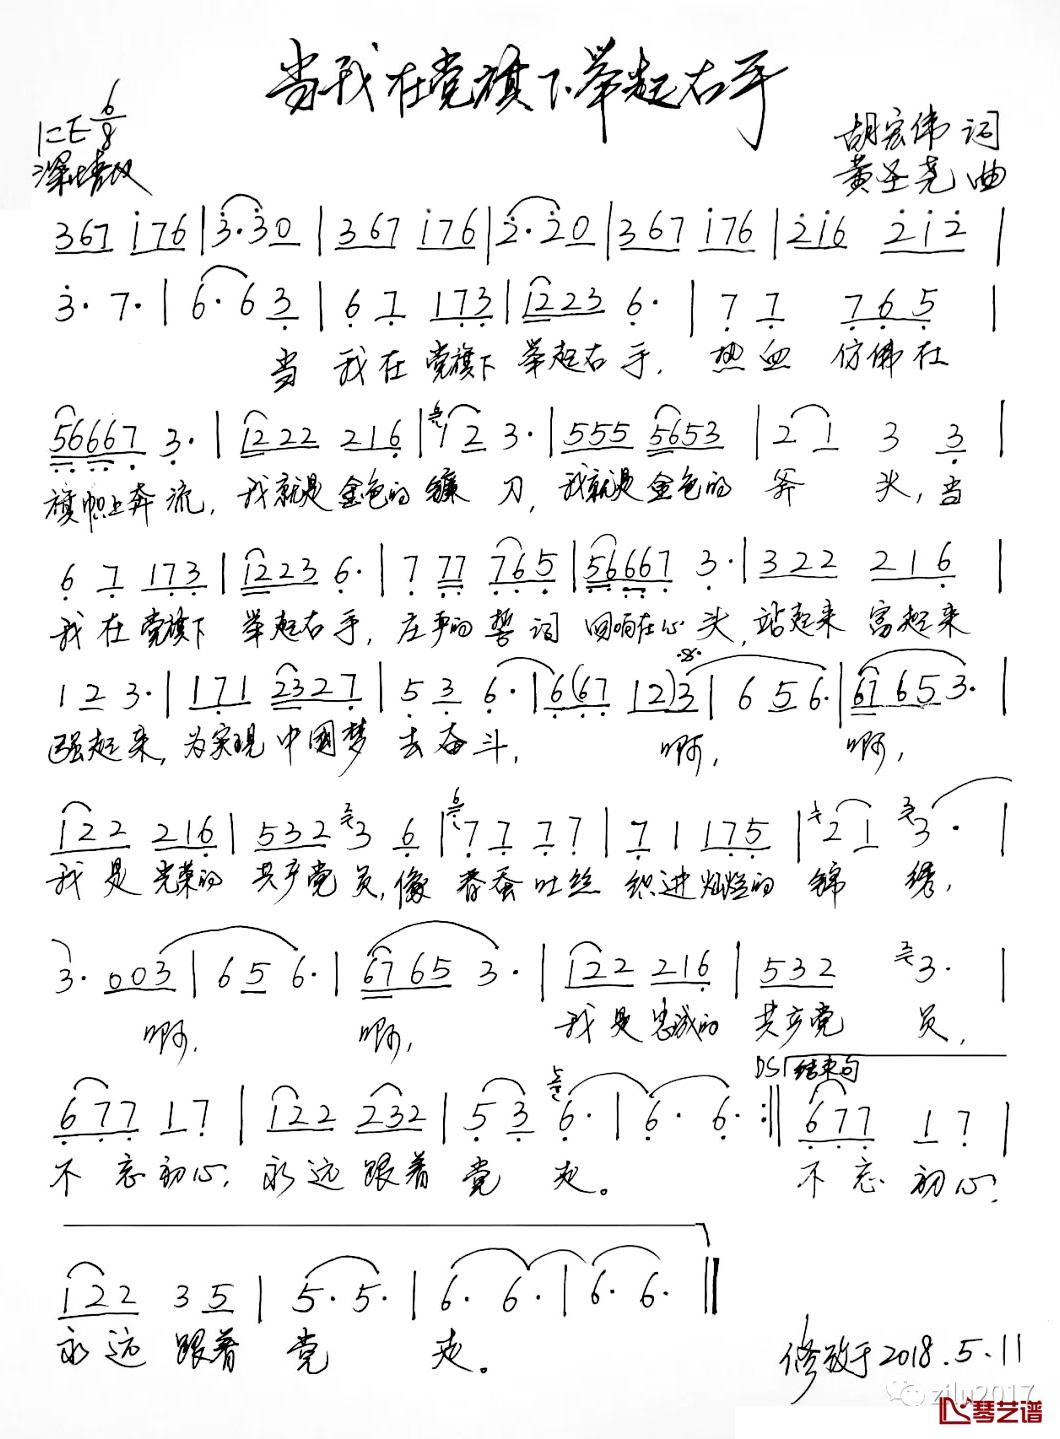 当我在党旗下举起右手
1=E 6/8
深情地
胡宏伟 词
黄圣尧 曲
367 i76 | 3·30 | 367 i76 | 2·20 | 367 i76 | 2i6 2i2 |
3· 7· | 6· 6 3 | 6 7 173 | 1223 6· | 7 7 765 |
当 我在党旗下 举起右手, 热血 仿佛在
56667 3· | 1222 216 | 12 3· | 555 5653 | 2 1 3 3 |
旗帜上奔流, 我就是金色的镰 刀, 我就是金色的 斧 头, 当
6 7 173 | 1223 6· | 7 77 765 | 56667 3· | 322 216 |
我在党旗下 举起右手, 庄严的誓词 回响在心头, 站起来 富起来
1 2 3· | 171 2327 | 5 3 6· | 6(67 12)3 | 6 5 6· | 67 65 3· |
强起来, 为实现中国梦 去奋斗, 啊, 啊,
122 216 | 532 3 6 | 7 7 7 7 | 7 1 175 | 2 1 3· |
我是光荣的 共产党员, 像 春蚕吐丝 织进灿烂的 锦 绣,
3· 003 | 6 5 6· | 67 65 3· | 122 216 | 532 3· |
啊, 啊, 我是忠诚的 共产党 员,
DS 结束句
677 17 | 122 232 | 5 3 6· | 6· 6· :|| 677 1 7 |
不忘初心, 永远跟着 党 走。 不忘 初心,
122 3 5 | 5· 5· | 6· 6· | 6· 6· ||
永远 跟着 党 走。
修改于2018.5.11
zilu2017
琴艺谱